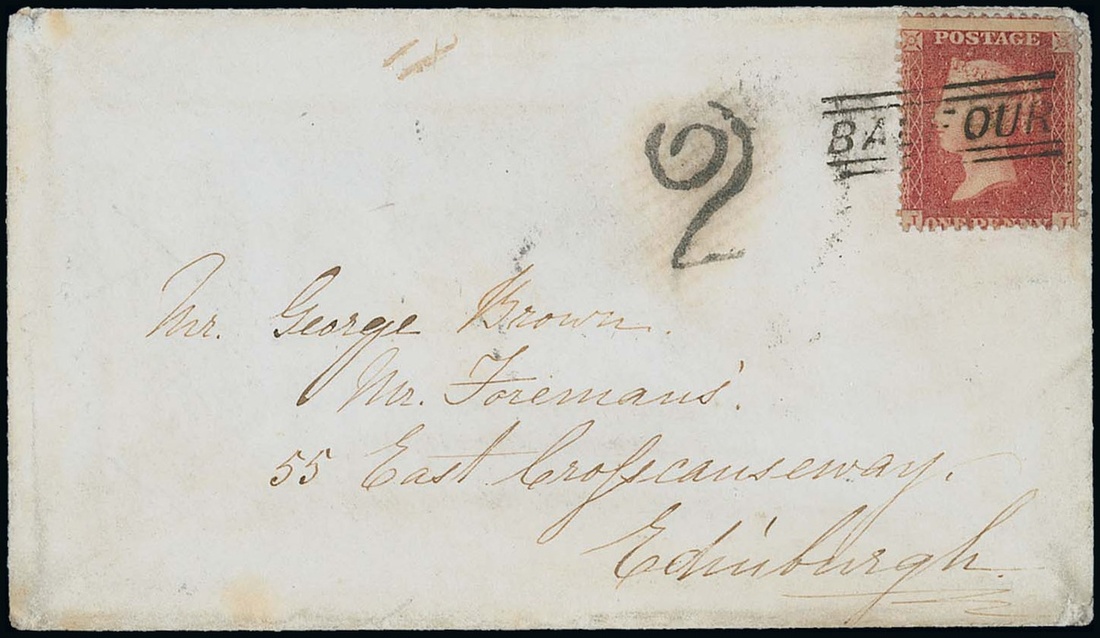 POSTAGE
BALFOUR
ONE PENNY
2
Mr. George Brown.
Mr. Foremans'.
55 East Croſscauseway.
Edinburgh.